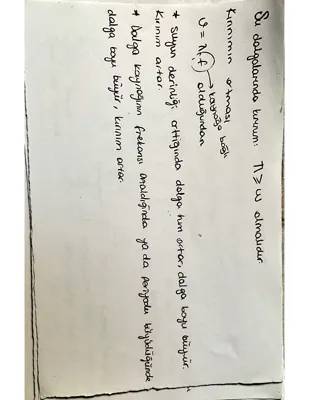 Su dalgalarında kırınım: λ ≥ w olmalıdır.
Kırınımın artması
υ = λ.f olduğundan
kaynağa bağlı
* Suyun derinliği arttığında dalga hızı artar, dalga boyu büyür.
Kırınım artar.
* Dalga kaynağının frekansı azaldığında ya da periyodu büyüdüğünde
dalga boyu büyür, kırınım artar.